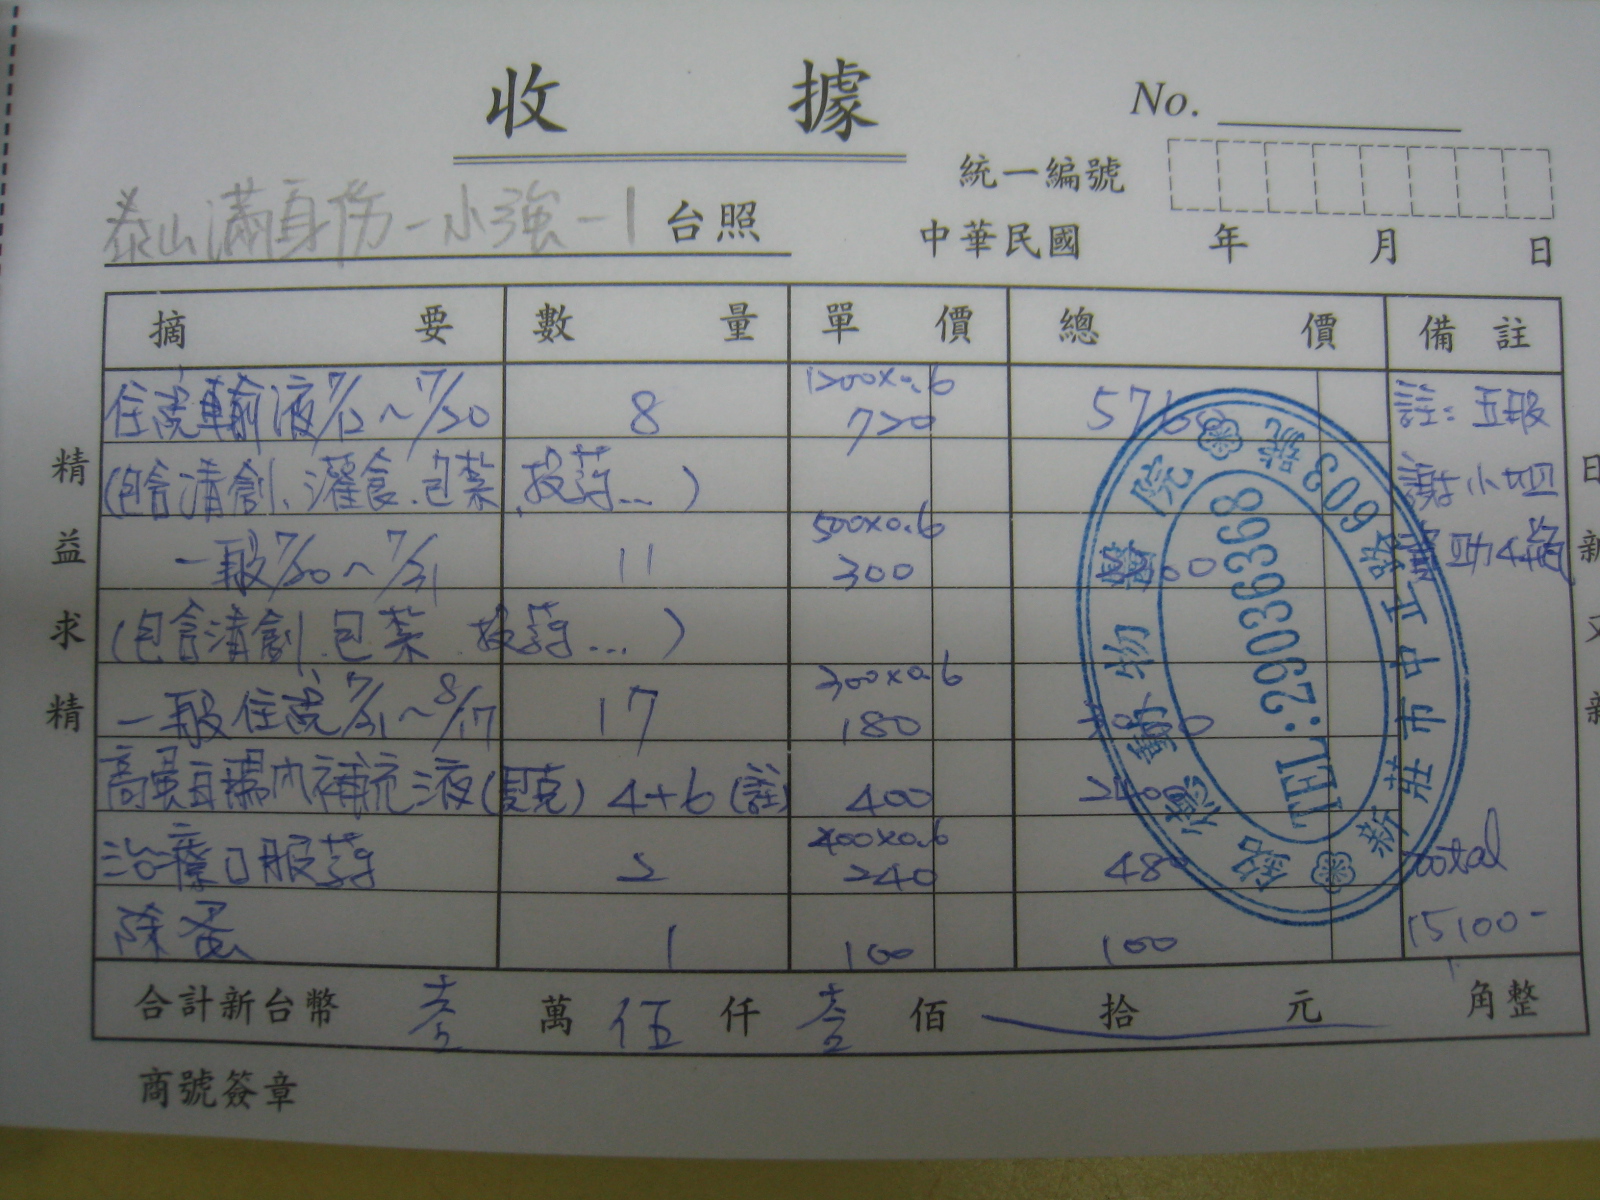 收據
No.
統一編號
泰山滿身傷-小強-1 台照
中華民國 年 月 日
摘要 數量 單價 總價 備註
住院輸液7/12~7/20 8 1200x0.6 720 5760 註:五股
(包含清創、灌食、包紮、投葯...) 謝小姐
一般7/20~7/31 11 500x0.6 300 助4瓶
(包含清創、包紮、投葯...)
一般住院7/31~8/17 17 300x0.6 180
高蛋白腸內補充液( 克) 4+6 (註) 400 2400
治療口服葯 2 400x0.6 240 480 total
除蚤 1 100 100 15100-
合計新台幣 壹 萬 伍 仟 壹 佰 拾 元 角整
商號簽章
精益求精
日新又新
德動物醫院
新莊市中正路603號
TEL:29036368